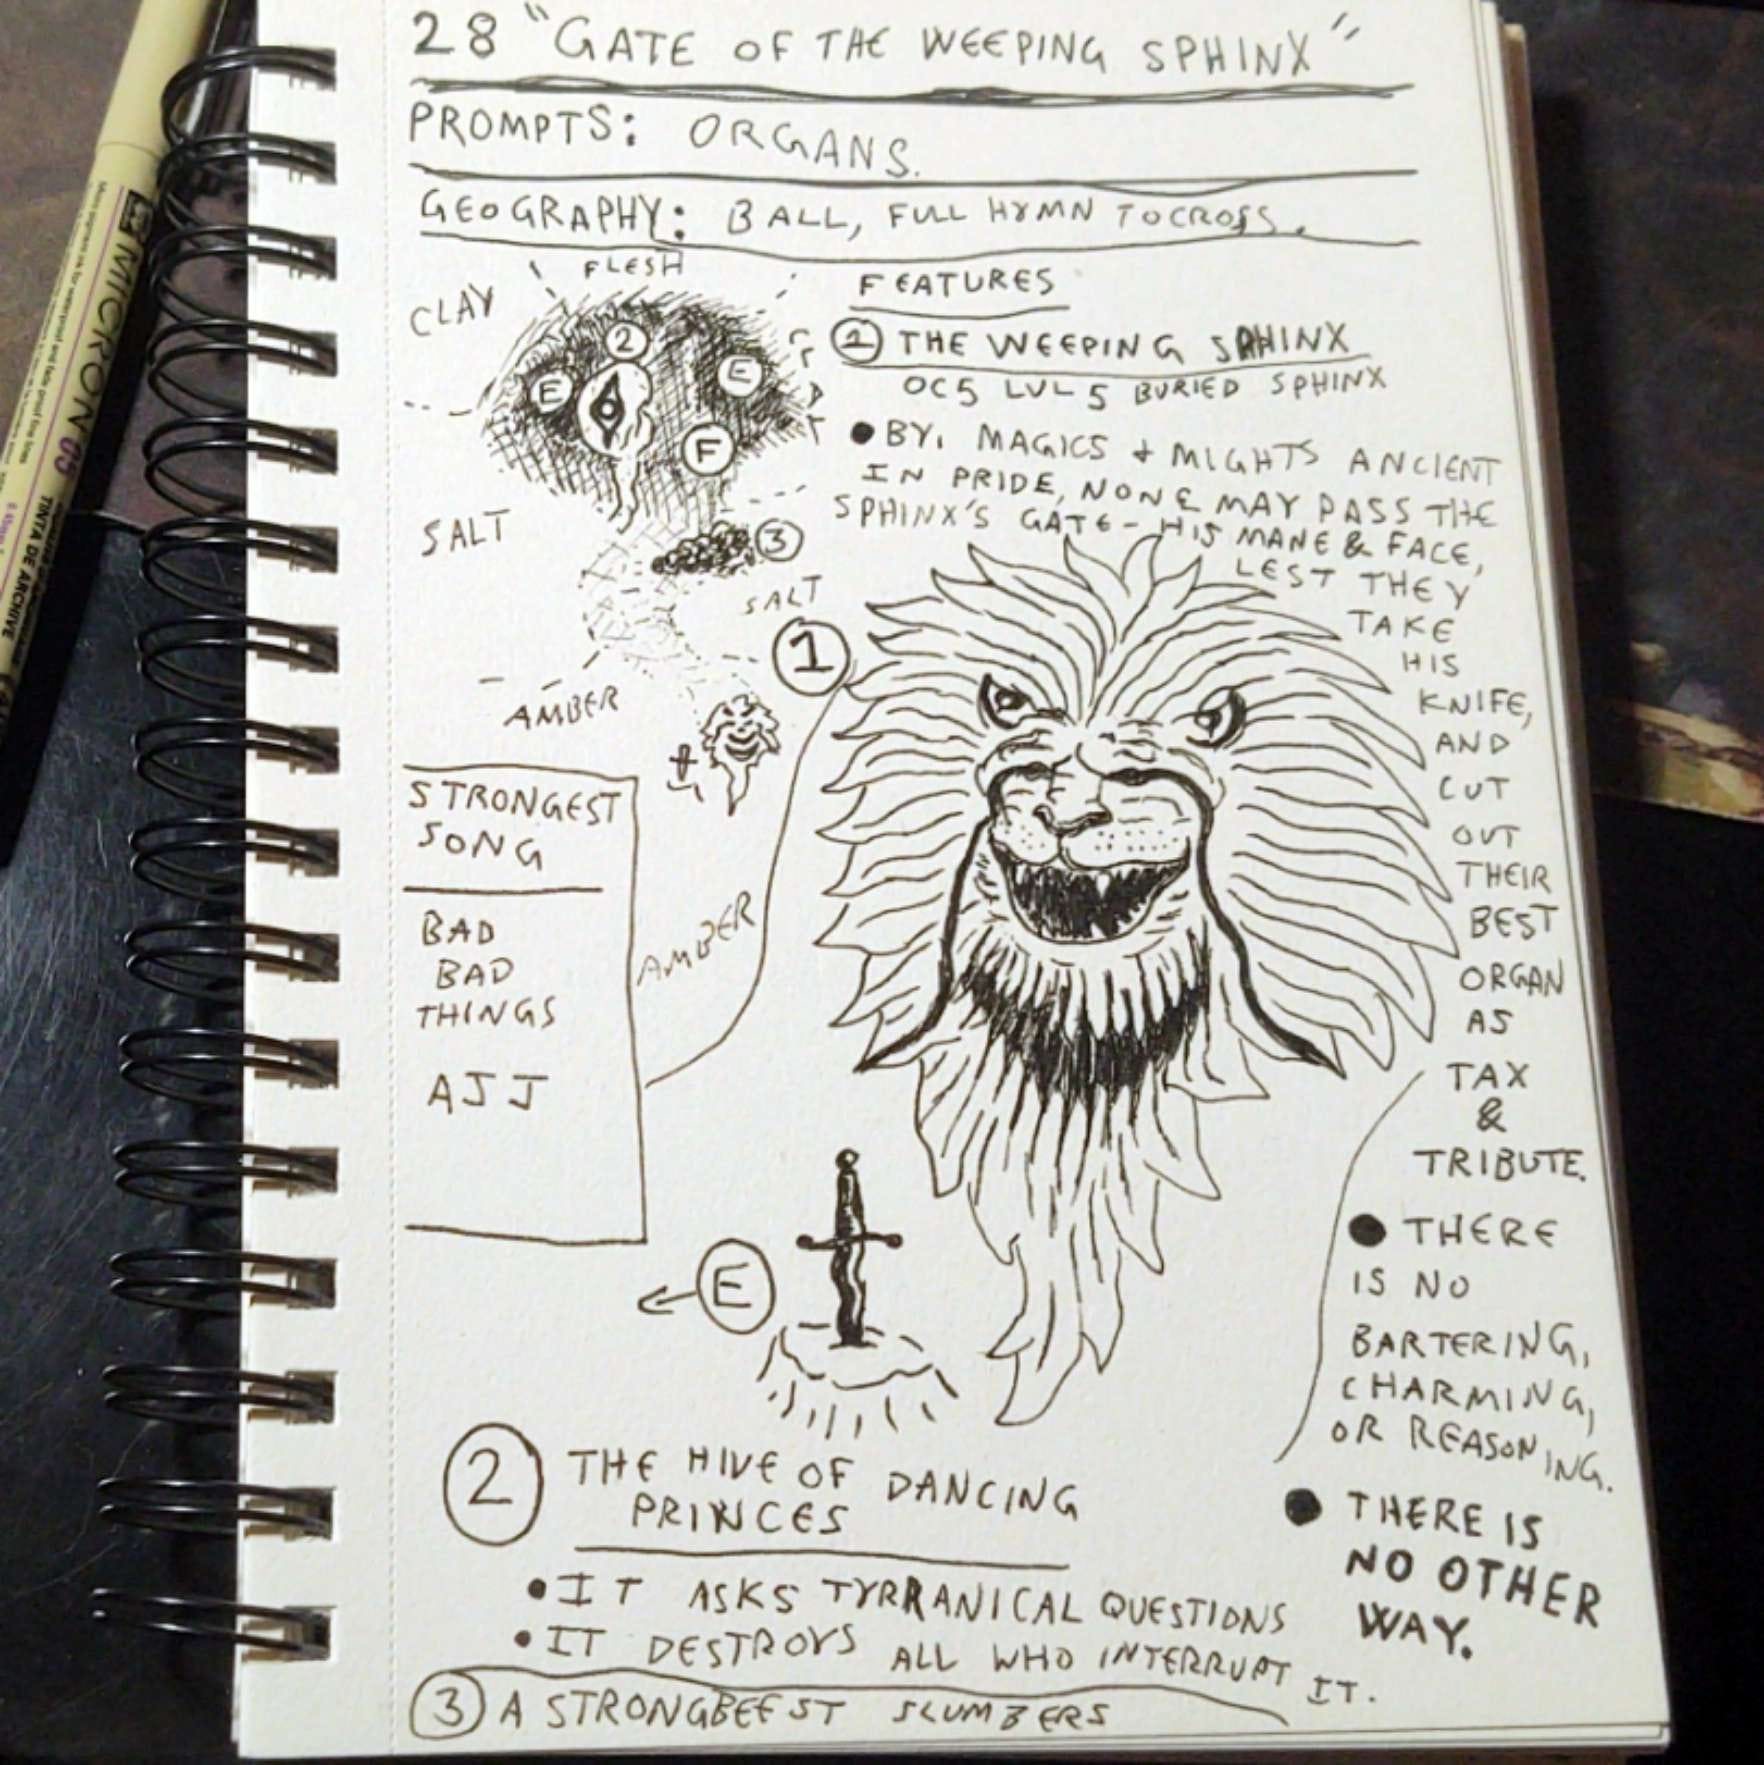 28 "GATE OF THE WEEPING SPHINX"
PROMPTS: ORGANS.
GEOGRAPHY: BALL, FULL HYMN TO CROSS.
FLESH
CLAY
2
E
E
F
SALT
3
SALT
AMBER
AMBER
FEATURES
1 THE WEEPING SPHINX
OC5 LVL 5 BURIED SPHINX
● BY. MAGICS + MIGHTS ANCIENT
IN PRIDE, NONE MAY PASS THE
SPHINX'S GATE - HIS MANE & FACE,
LEST THEY
TAKE
HIS
KNIFE,
AND
CUT
OUT
THEIR
BEST
ORGAN
AS
TAX
&
TRIBUTE.
● THERE
IS NO
BARTERING,
CHARMING,
OR REASONING.
● THERE IS
NO OTHER
WAY.
1
STRONGEST
SONG
BAD
BAD
THINGS
AJJ
E
2 THE HIVE OF DANCING
PRINCES
• IT ASKS TYRRANICAL QUESTIONS
• IT DESTROYS ALL WHO INTERRUPT IT.
3 A STRONGBEEST SLUMBERS
MICRON 05
TINTA DE ARCHIVE